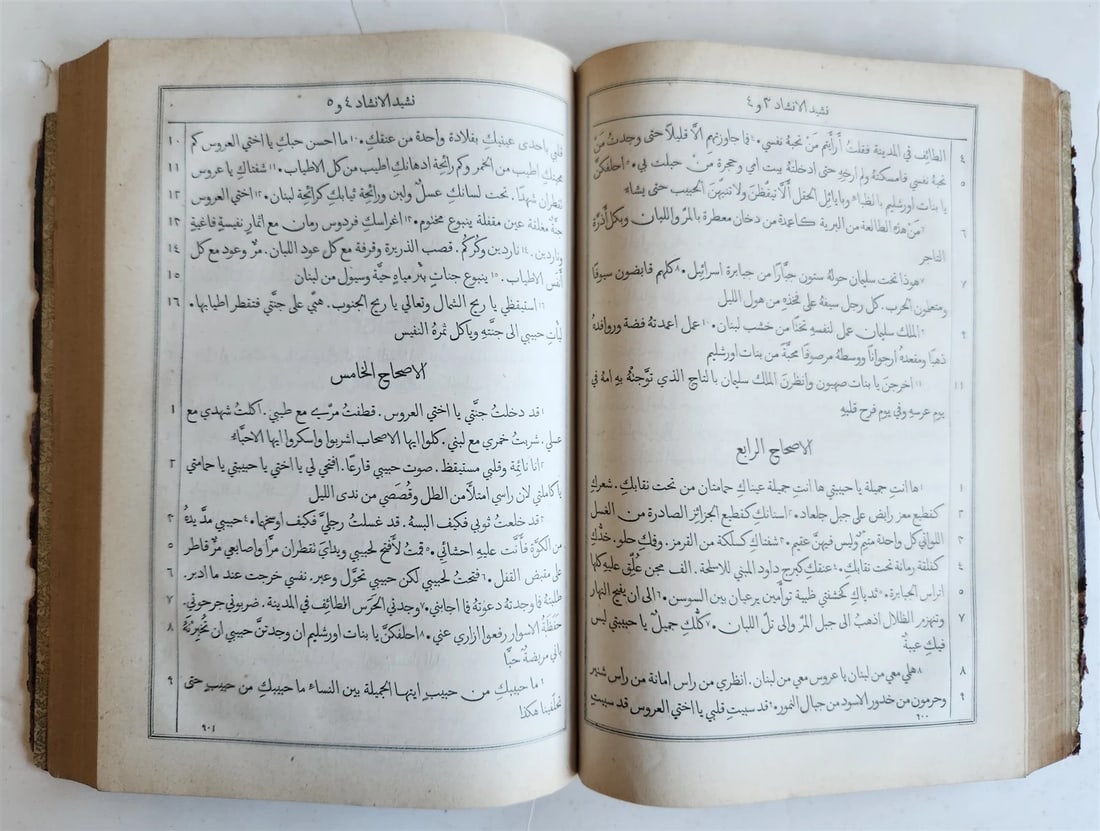 نشيد الانشاد ٣ و ٤
الطائف في المدينة فقلت أَرأَيتم مَنْ تحبهُ نفسي ٤ فما جاوزتهم الَّا قليلاً حتى وجدتُ مَنْ ٤
تحبهُ نفسي فامسكتهُ ولم ارخهِ حتى ادخلتهُ بيت امي وحجرة مَنْ حبلت بي ٥ احلفكنَّ ٥
يا بنات اورشليم بالظباء وبايائل الحقل أَلَّا تيقظنَ ولا تنبهنَ الحبيب حتى يشاءَ
٦ مَن هذه الطالعة من البرية كاعمدة من دخان معطرة بالمرّ واللبان وبكل أَذرَّة ٦
التاجر
٧ هوذا تخت سليمان حولهُ ستون جبَّارًا من جبابرة اسرائيل ٨ كلهم قابضون سيوفًا ٧
ومتعلمون الحرب. كل رجل سيفهُ على فخذهِ من هول الليل
٩ الملك سليمان عمل لنفسهِ تختًا من خشب لبنان ١٠ عمل اعمدتهُ فضة وروافدهُ ٩
ذهبًا ومقعدهُ ارجوانًا ووسطهُ مرصوفًا محبَّةً من بنات اورشليم
١١ اخرجنَ يا بنات صهيون وانظرنَ الملك سليمان بالتاج الذي توَّجتهُ بهِ امهُ في ١١
يوم عرسهِ وفي يوم فرح قلبهِ
الاصحاح الرابع
١ ها انتِ جميلة يا حبيبتي ها انتِ جميلة عيناكِ حمامتان من تحت نقابكِ. شعركِ ١
كقطيع معز رابض على جبل جلعاد ٢ اسنانكِ كقطيع الجزائز الصادرة من الغسل ٢
اللواتي كل واحدة متيم وليس فيهنَّ عقيم ٣ شفتاكِ كسلكة من القرمز. وفمكِ حلو. خدُّكِ ٣
كفلقة رمانة تحت نقابكِ ٤ عنقكِ كبرج داود المبني للاسلحة. الف مجن عُلِّق عليهِ كلها ٤
اتراس الجبابرة ٥ ثدياكِ كخشفتي ظبية توأَمين يرعيان بين السوسن ٦ الى ان يفيح النهار ٥
وتنهزم الظلال اذهبُ الى جبل المرّ والى تلّ اللبان ٧ كلُّكِ جميلٌ يا حبيبتي ليس ٧
فيكِ عيبةٌ
٨ هلمي معي من لبنان يا عروس معي من لبنان. انظري من راس امانة من راس شنير ٨
وحرمون من خدور الاسود من جبال النمور ٩ قد سبيتِ قلبي يا اختي العروس قد سبيتِ ٩
٦٠٠
نشيد الانشاد ٤ و ٥
قلبي باحدى عينيكِ بقلادة واحدة من عنقكِ ١٠ ما احسن حبكِ يا اختي العروس كم ١٠
محبتكِ اطيب من الخمر وكم رائحة ادهانكِ اطيب من كل الاطياب ١١ شفتاكِ يا عروس ١١
تقطران شهدًا. تحت لسانكِ عسلٌ ولبن ورائحة ثيابكِ كرائحة لبنان ١٢ اختي العروس ١٢
جنَّةٌ مغلقة عين مقفلة ينبوع مختوم ١٣ اغراسكِ فردوس رمان مع اثمار نفيسة فاغيةٍ ١٣
وناردين ١٤ ناردين وكُركُم. قصب الذريرة وقرفة مع كل عود اللبان. مرٌّ وعود مع كل ١٤
أَنفَس الاطياب ١٥ ينبوع جنات بئر مياه حيَّة وسيول من لبنان ١٥
١٦ استيقظي يا ريح الشمال وتعالي يا ريح الجنوب. هبّي على جنَّتي فتقطر اطيابها. ١٦
ليأتِ حبيبي الى جنتهِ وياكل ثمرهُ النفيس
الاصحاح الخامس
١ قد دخلتُ جنَّتي يا اختي العروس. قطفتُ مرّي مع طيبي. اكلتُ شهدي مع ١
عسلي. شربتُ خمري مع لبني. كلوا ايها الاصحاب اشربوا واسكروا ايها الاحبَّاءُ
٢ انا نائمة وقلبي مستيقظ. صوت حبيبي قارعًا. افتحي لي يا اختي يا حبيبتي يا حمامتي ٢
يا كاملتي لان راسي امتلأ من الطل وقُصَصي من ندى الليل
٣ قد خلعتُ ثوبي فكيف البسهُ. قد غسلتُ رجليَّ فكيف اوسخها ٤ حبيبي مدَّ يدهُ ٣
من الكوَّة فأَنَّت عليهِ احشائي ٥ قمتُ لأَفتح لحبيبي ويدايَ تقطران مرًّا واصابعي مرٌّ قاطر ٥
على مقبض القفل ٦ فتحتُ لحبيبي لكن حبيبي تحوَّل وعبر. نفسي خرجت عند ما ادبر. ٦
طلبتهُ فما وجدتهُ دعوتهُ فما اجابني ٧ وجدني الحَرَس الطائف في المدينة. ضربوني جرحوني. ٧
حَفَظَةُ الاسوار رفعوا ازاري عني ٨ احلفكنَّ يا بنات اورشليم ان وجدتنَّ حبيبي ان تُخبِرنَهُ ٨
باني مريضة حبًّا
٩ ما حبيبكِ من حبيبٍ ايتها الجميلة بين النساء ما حبيبكِ من حبيبٍ حتى ٩
تحلّفينا هكذا
٦٠١